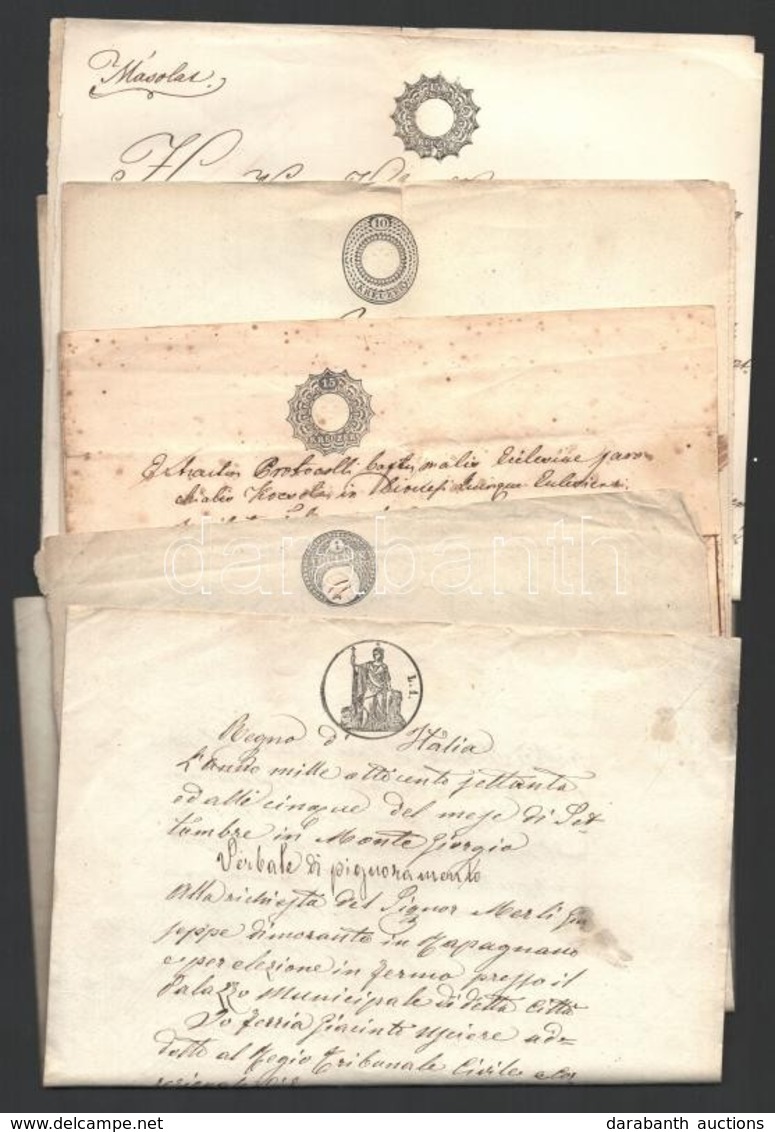 Másolat.
15
10
KREUZER
15
KREUZER
Protocolli
in
darabanth
1
L. 1.
Regno d' Italia
L'anno mille ottocento settanta
ed alli cinque del mese di Set
tembre in Monte Giorgio
Verbale di pignoramento
Alla richiesta del Signor Merli Giu
seppe dimorante in Rapagnano
e per elezione in Fermo presso il
Palazzo Municipale di detta Città
Io Ferria Giacinto Usciere ad=
detto al Regio Tribunale Civile e Cor
darabanth auctions